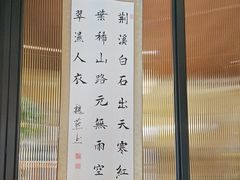 荊溪白石出天寒紅
葉稀山路元無雨空
翠濕人衣